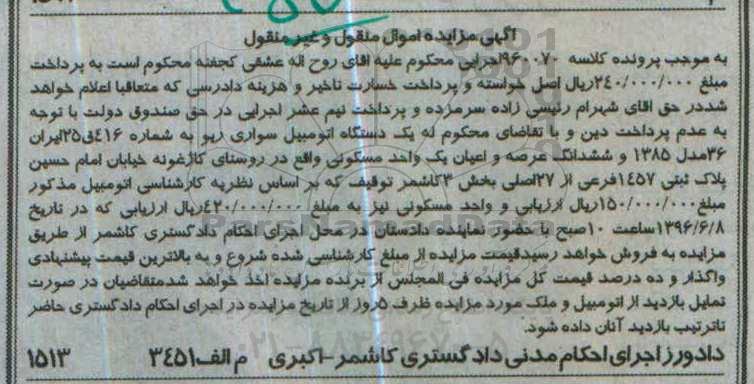 آگهی مزایده اموال منقول و غیر منقول
به موجب پرونده کلاسه ۹۶۰۰۷۰اجرایی محکوم علیه اقای روح اله عشقی کجفته محکوم است به پرداخت
مبلغ ۲۴۰/۰۰۰/۰۰۰ریال اصل خواسته و پرداخت خسارت تاخیر و هزینه دادرسی که متعاقبا اعلام خواهد
شددر حق اقای شهرام رئیسی زاده سرمزده و پرداخت نیم عشر اجرایی در حق صندوق دولت با توجه
به عدم پرداخت دین و با تقاضای محکوم له یک دستگاه اتومبیل سواری ریو به شماره ۴۱۶ق۲۵ایران
۳۶مدل ۱۳۸۵ و ششدانگ عرصه و اعیان یک واحد مسکونی واقع در روستای کاژغونه خیابان امام حسین
پلاک ثبتی ۱۴۵۷فرعی از ۲۷اصلی بخش ۳کاشمر توقیف که بر اساس نظریه کارشناسی اتومبیل مذکور
مبلغ۱۵۰/۰۰۰/۰۰۰ریال ارزیابی و واحد مسکونی نیز به مبلغ ۴۲۰/۰۰۰/۰۰۰ریال ارزیابی که در تاریخ
۱۳۹۶/۶/۸ساعت ۱۰صبح با حضور نماینده دادستان در محل اجرای احکام دادگستری کاشمر از طریق
مزایده به فروش خواهد رسیدقیمت مزایده از مبلغ کارشناسی شده شروع و به بالاترین قیمت پیشنهادی
واگذار و ده درصد قیمت کل مزایده فی المجلس از برنده مزایده اخذ خواهد شدمتقاضیان در صورت
تمایل بازدید از اتومبیل و ملک مورد مزایده ظرف ۵روز از تاریخ مزایده در اجرای احکام دادگستری حاضر
تاترتیب بازدید آنان داده شود.
دادورز اجرای احکام مدنی دادگستری کاشمر -اکبری م الف۳۴۵۱ ۱۵۱۳